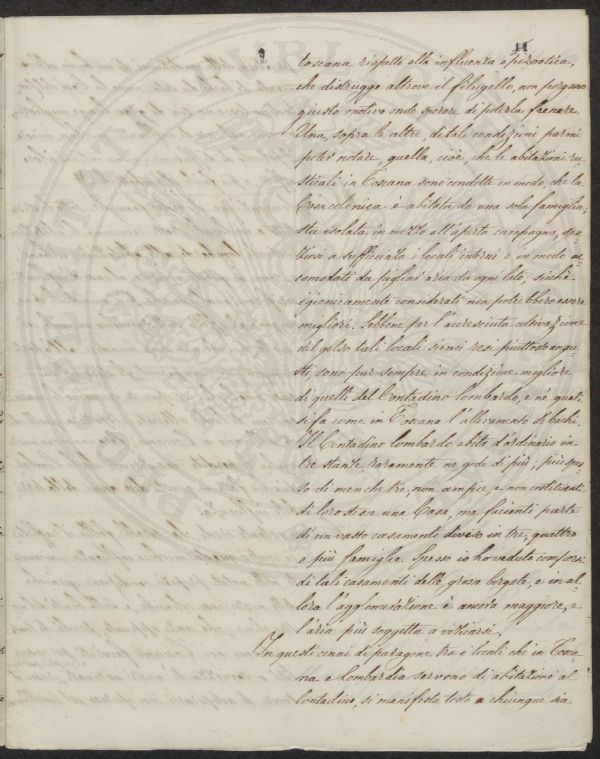 11
toscana rispetto alla influenza epizootica,
che distrugge altrove il filugello, non porgano
giusto motivo onde sperare di poterla frenare.
Una, sopra le altre, di tali condizioni parmi
poter notare, quella, cioè, che le abitazioni ru-
sticali in Toscana sono condotte in modo, che la
Casa colonica è abitata da una sola famiglia;
sta isolata in mezzo all'aperta campagna, spa-
ziosi a sufficienza i locali interni e in modo ac-
comodati da pigliar aria da ogni lato; sicchè
igienicamente considerati non potrebbero essere
migliori. Sebbene per l'accresciuta cultivazione
del gelso tali locali siensi resi piuttosto angu-
sti, sono pur sempre in condizione migliore
di quelli del Contadino lombardo, e ne' quali
si fa come in Toscana l'allevamento de' bachi.
Il Contadino lombardo abita d'ordinario in
tre stanze raramente ne gode di più; più spes-
so di men che tre, non ampie, e non costituenti
di loro stesse una Casa, ma facienti parte
di un vasto casamento diviso in tre, quattro
e più famiglie. Spesso io ho veduto comporsi
di tali casamenti delle grosse borgate, e in al-
lora l'agglomerazione è ancora maggiore, e
l'aria più soggetta a viziarsi.
In questi cenni di paragone tra i locali che in Tosca-
na e Lombardia servono di abitazione al
Contadino, si manifesta tosto a chiunque sia